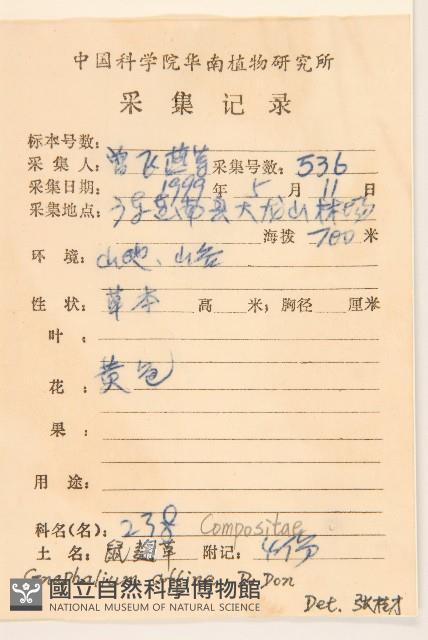 中国科学院华南植物研究所
采集记录
标本号数:
采集人: 曾飞燕等 采集号数: 536
采集日期: 1999 年 5 月 11 日
采集地点: 广东 南县大龙山林场
海拨 700 米
环境: 山地、山谷
性状: 草本 高 米; 胸径 厘米
叶:
花: 黄色
果:
用途:
科名(名): 238 Compositae
土名: 鼠麴草 附记: 4份
Gnaphalium affine D. Don
國立自然科學博物館
NATIONAL MUSEUM OF NATURAL SCIENCE
Det. 张桂才